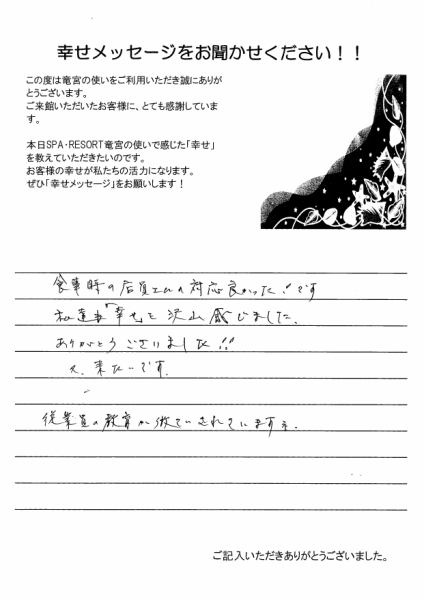 幸せメッセージをお聞かせください！！
この度は竜宮の使いをご利用いただき誠にありが
とうございます。
ご来館いただいたお客様に、とても感謝していま
す。
本日SPA・RESORT竜宮の使いで感じた「幸せ」
を教えていただきたいのです。
お客様の幸せが私たちの活力になります。
ぜひ「幸せメッセージ」をお願いします！
食事時の店員さんの対応良かった！です
私達も幸せを沢山感じました。
ありがとうございました!!
又、来たいです。
従業員の教育が徹底されていますネ。
ご記入いただきありがとうございました。